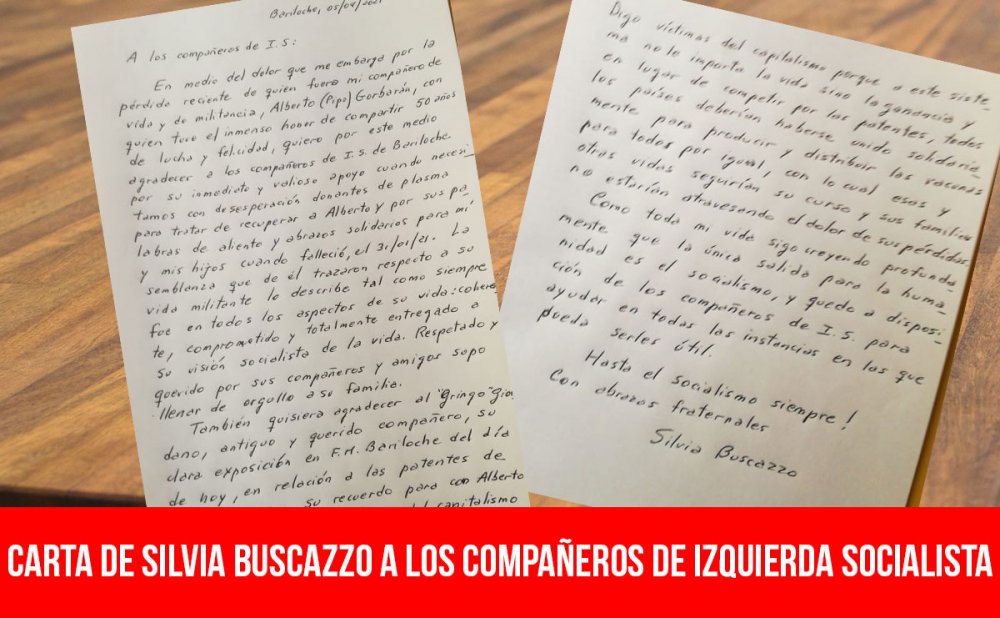 Bariloche, 05/04/2021
A los compañeros de I.S:
En medio del dolor que me embarga por la
pérdida reciente de quien fuera mi compañero de
vida y de militancia, Alberto (Pipo) Gorbarán, con
quien tuve el inmenso honor de compartir 50 años
de lucha y felicidad, quiero por este medio
agradecer a los compañeros de I.S. de Bariloche
por su inmediato y valioso apoyo cuando necesi
tamos con desesperación donantes de plasma
para tratar de recuperar a Alberto y por sus pa
labras de aliento y abrazos solidarios para mí
y mis hijos cuando falleció, el 31/01/21. La
semblanza que de él trazaron respecto a su
vida militante lo describe tal como siempre
fue en todos los aspectos de su vida: coheren
te, comprometido y totalmente entregado a
su visión socialista de la vida. Respetado y
querido por sus compañeros y amigos supo
llenar de orgullo a su familia.
También quisiera agradecer al "Gringo" Gior
dano, antiguo y querido compañero, su
clara exposición en F.M. Bariloche del día
de hoy, en relación a las patentes de
su recuerdo para con Alberto
del capitalismo
Digo víctimas del capitalismo porque a este siste
ma no le importa la vida sino la ganancia y
en lugar de competir por las patentes, todos
los países deberían haberse unido solidaria
mente para producir y distribuir las vacunas
para todos por igual, con lo cual esas y
otras vidas seguirían su curso y sus familias
no estarían atravesando el dolor de sus pérdidas
Como toda mi vida sigo creyendo profunda
mente que la única salida para la huma
nidad es el socialismo, y quedo a disposi
ción de los compañeros de I.S. para
ayudar en todas las instancias en las que
pueda serles útil.
Hasta el socialismo siempre!
Con abrazos fraternales
Silvia Buscazzo
CARTA DE SILVIA BUSCAZZO A LOS COMPAÑEROS DE IZQUIERDA SOCIALISTA